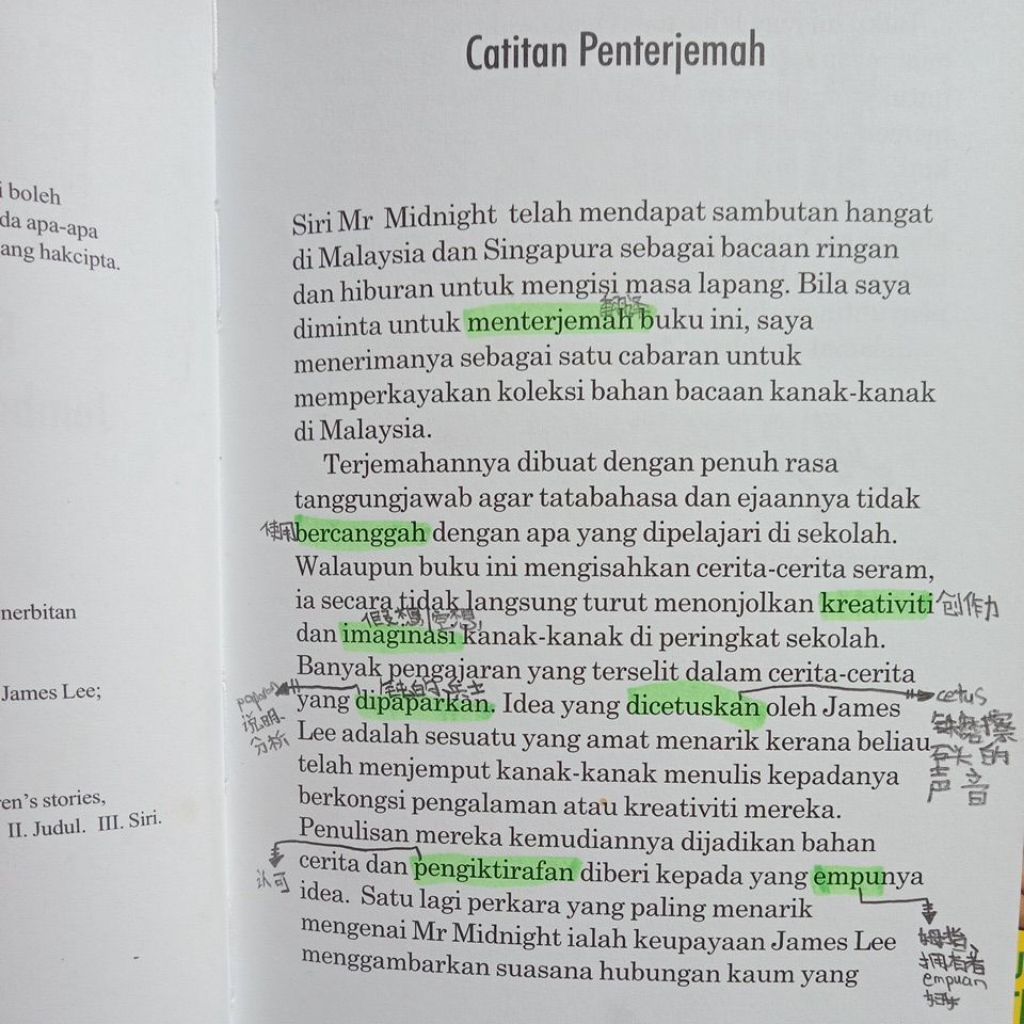 i boleh
da apa-apa
ang hakcipta.
nerbitan
James Lee;
en's stories,
II. Judul. III. Siri.
Catitan Penterjemah
Siri Mr Midnight telah mendapat sambutan hangat
di Malaysia dan Singapura sebagai bacaan ringan
dan hiburan untuk mengisi masa lapang. Bila saya
翻译
diminta untuk menterjemah buku ini, saya
menerimanya sebagai satu cabaran untuk
memperkayakan koleksi bahan bacaan kanak-kanak
di Malaysia.
Terjemahannya dibuat dengan penuh rasa
tanggungjawab agar tatabahasa dan ejaannya tidak
bercanggah dengan apa yang dipelajari di sekolah.
Walaupun buku ini mengisahkan cerita-cerita seram,
ia secara tidak langsung turut menonjolkan kreativiti 创作力
dan imaginasi kanak-kanak di peringkat sekolah.
Banyak pengajaran yang terselit dalam cerita-cerita
yang dipaparkan. Idea yang dicetuskan oleh James
cetus
说明、
分析
Lee adalah sesuatu yang amat menarik kerana beliau
石头的
声音
telah menjemput kanak-kanak menulis kepadanya
berkongsi pengalaman atau kreativiti mereka.
Penulisan mereka kemudiannya dijadikan bahan
cerita dan pengiktirafan diberi kepada yang empunya
认可
idea. Satu lagi perkara yang paling menarik
mengenai Mr Midnight ialah keupayaan James Lee
menggambarkan suasana hubungan kaum yang
拥有者
empuan